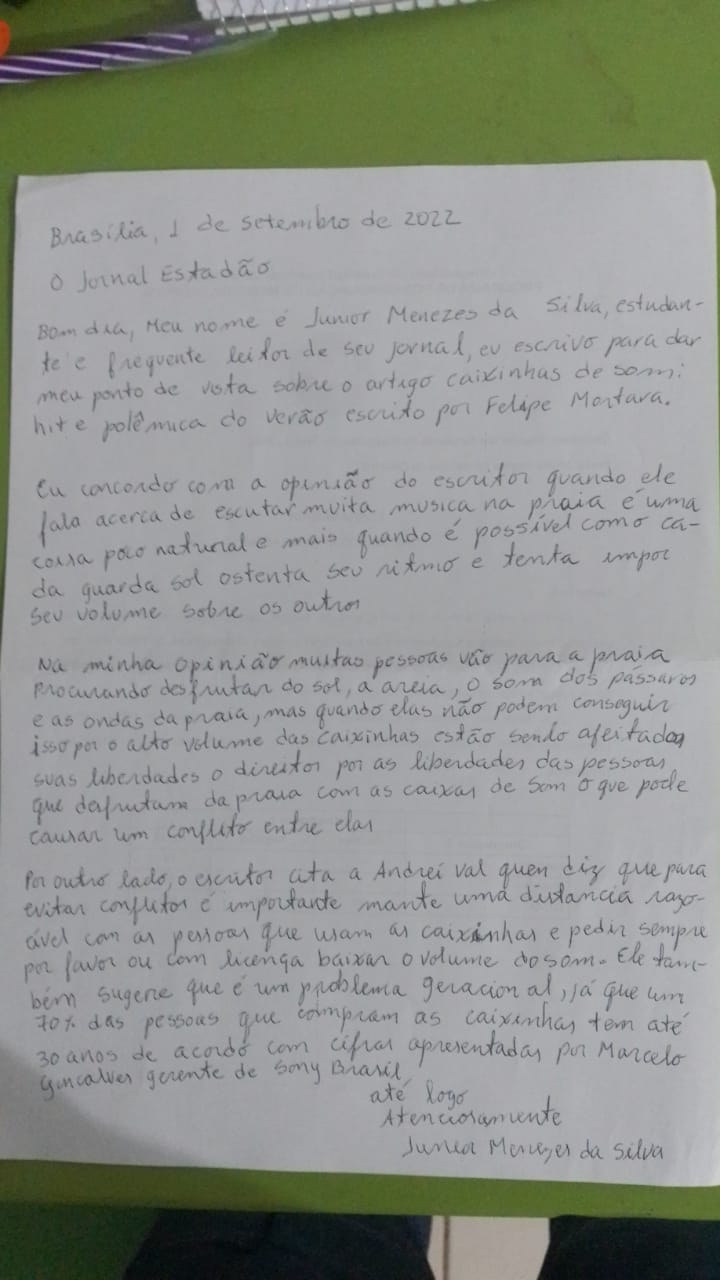 Brasília, 1 de setembro de 2022
O Jornal Estadão
Bom dia, Meu nome é Junior Menezes da Silva, estudan-
te e frequente leitor de seu jornal, eu escrivo para dar
meu ponto de vista sobre o artigo caixinhas de som:
hit e polêmica do verão escrito por Felipe Mortara.
Eu concordo com a opinião do escritor quando ele
fala acerca de escutar muita musica na praia é uma
coisa poco natural e mais quando é possível como ca-
da guarda sol ostenta seu ritmo e tenta impor
seu volume sobre os outros
Na minha opinião muitas pessoas vão para a praia
Procurando desfrutar do sol, a areia, o som dos pássaros
e as ondas da praia, mas quando elas não podem conseguir
isso por o alto volume das caixinhas estão sendo afeitadas
suas liberdades o direitos por as liberdades das pessoas
que desfrutam da praia com as caixas de som o que pode
causar um conflito entre elas
Por outro lado, o escritor cita a Andrei Val quen diz que para
evitar conflitos é importante mante uma distancia razo-
ável con as pessoas que usam as caixinhas e pedir sempre
por favor ou com licença baixar o volume do som. Ele tam-
bém sugere que é um problema geracional, já que um
70% das pessoas que compram as caixinhas tem até
30 anos de acordo com cifras apresentadas por Marcelo
Goncalves gerente de Sony Brasil
até logo
Atenciosamente
Junior Menezes da Silva